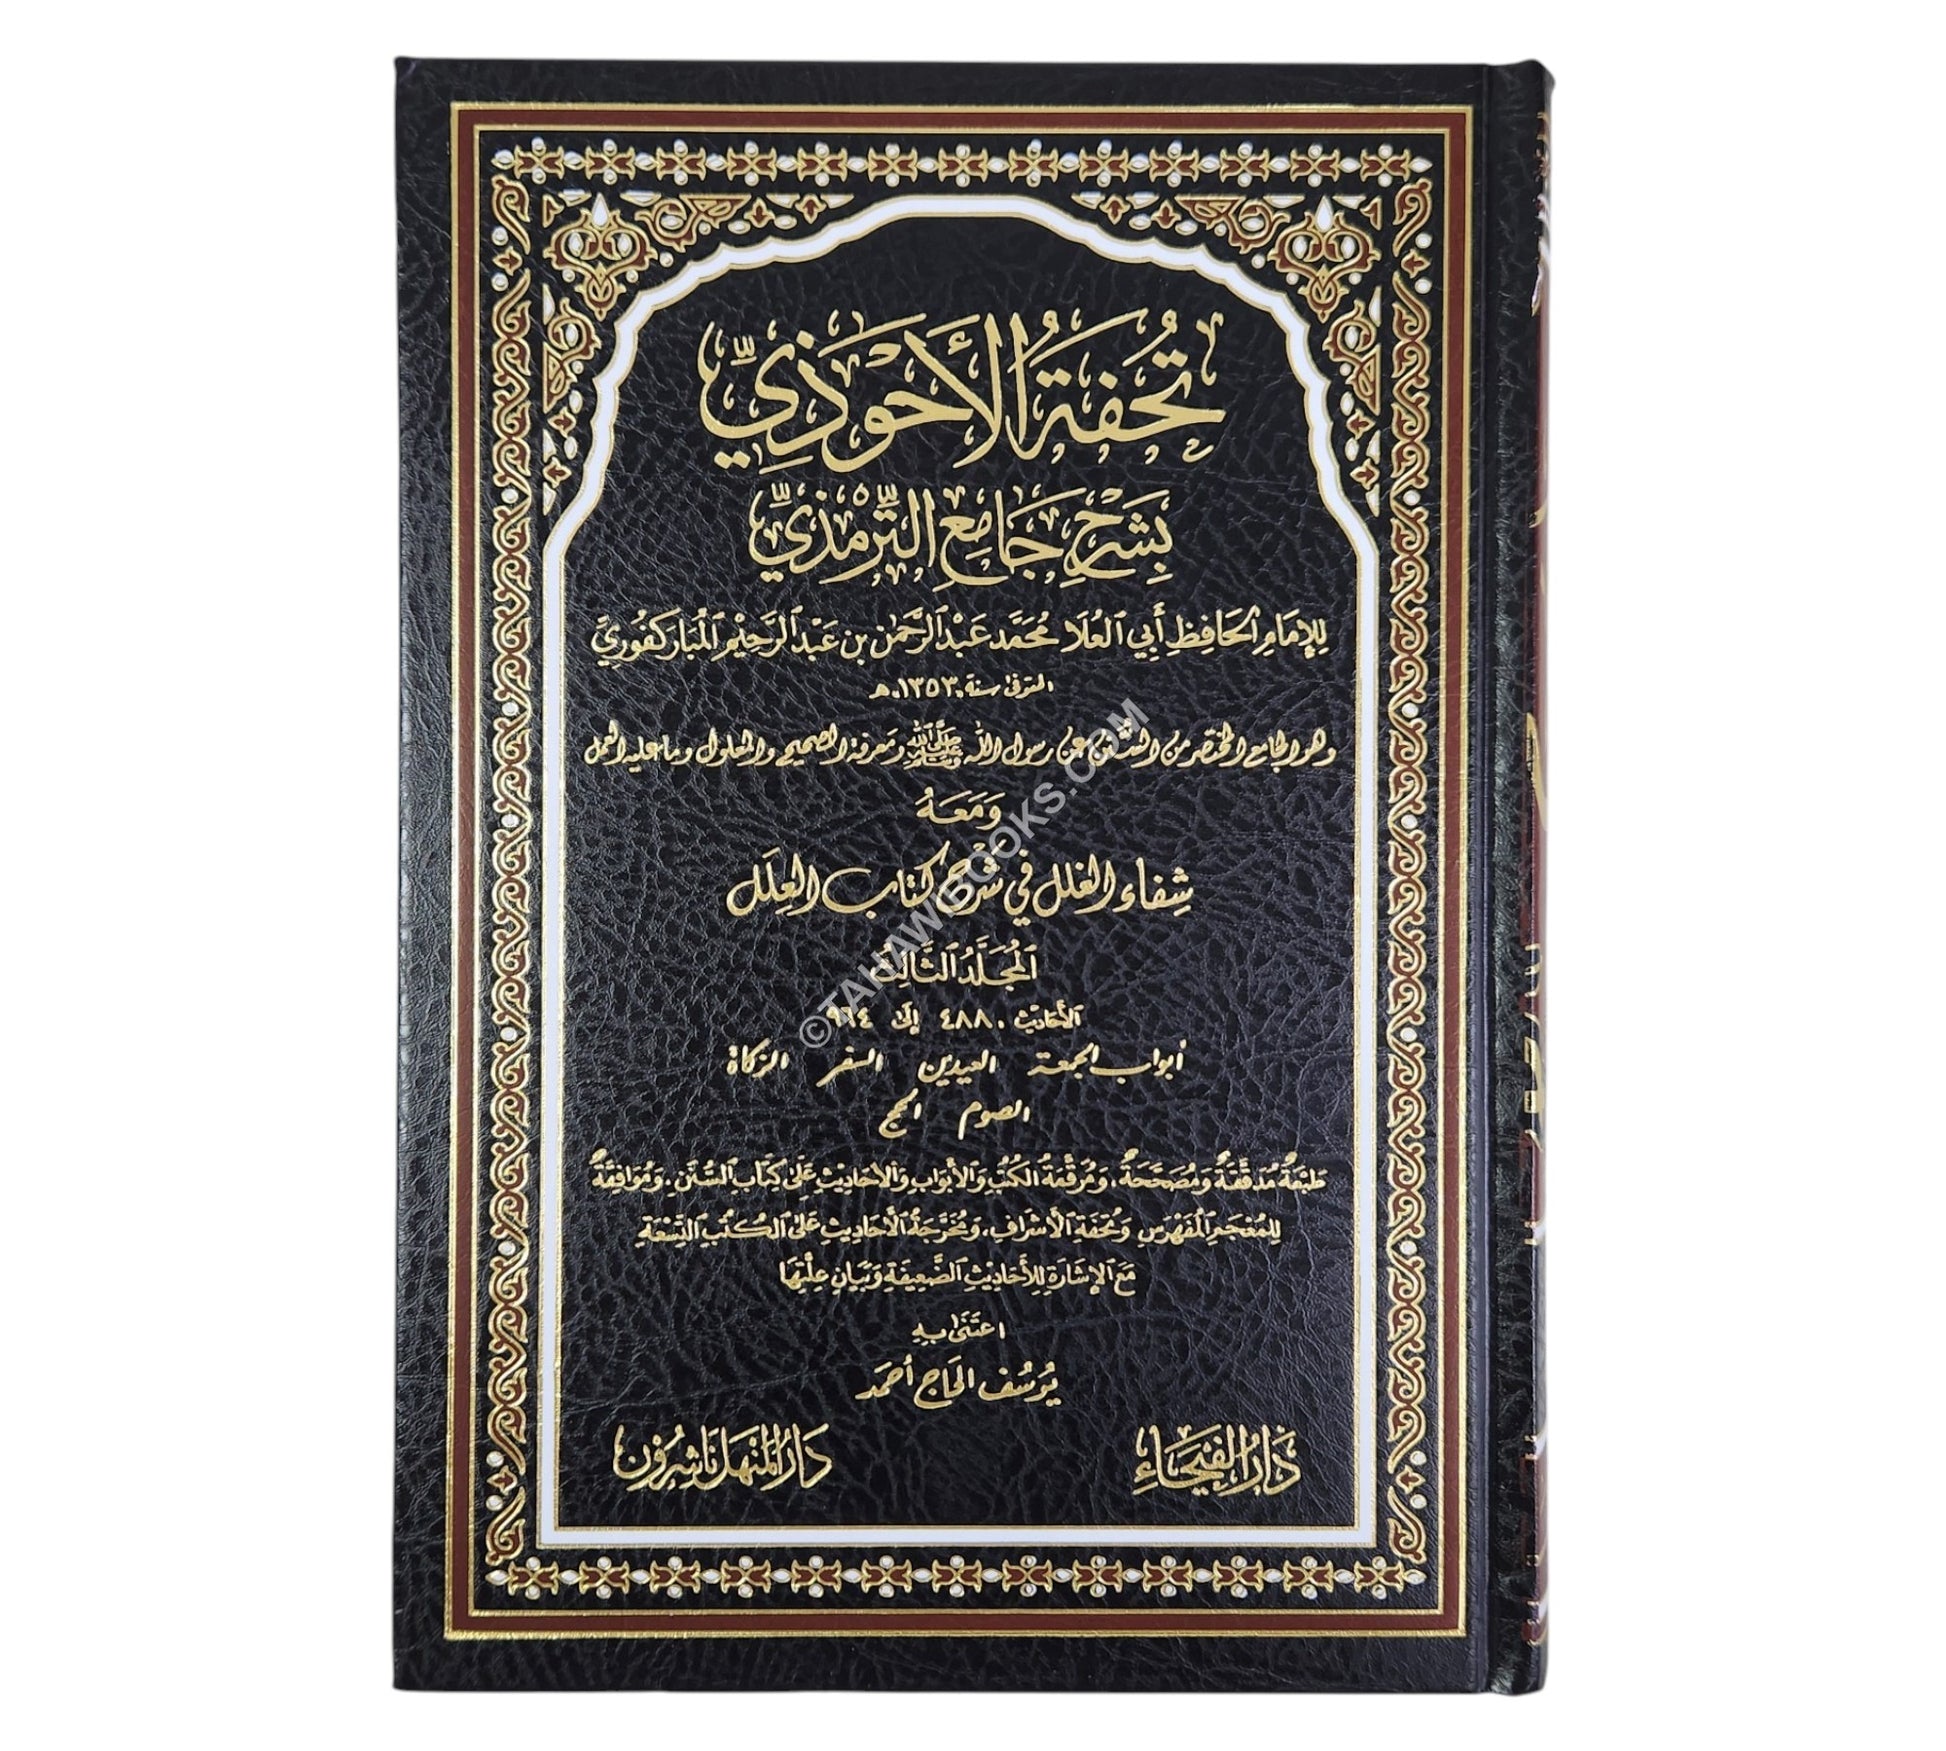 تُحْفَةُ الأَحْوَذِيِّ
بِشَرْحِ جَامِعِ التِّرْمِذِيِّ
لِلإِمَامِ الحَافِظِ أَبِي العُلَا مُحَمَّد عَبْدِ الرَّحْمٰن بن عَبْدِ الرَّحِيْمِ المُبَارَكْفُورِيِّ
المتوفى سنة ١٣٥٣هـ
وهو الجامع المختصر من السُّنن عن رسول الله ﷺ ومعرفة الصحيح والمعلول وما عليه العمل
وَمَعَهُ
شِفَاء الغلل في شرح كتاب العِلَل
المُجَلَّدُ الثَّالِثُ
الأَحَادِيْث ٤٨٨ إِلَى ٩٦٤
أبواب الجمعة العيدين السفر الزكاة
الصوم الحج
طَبْعَةٌ مُدَقَّقَةٌ وَمُصَحَّحَةٌ، وَمُرَقَّمَةُ الكُتُبِ وَالأَبْوَابِ وَالأَحَادِيْثِ عَلَى كِتَابِ السُّنَنِ، وَمُوَافِقَةٌ
لِلْمُعْجَمِ المُفَهْرَسِ وَتُحْفَةِ الأَشْرَافِ، وَمُخَرَّجَةُ الأَحَادِيْثِ عَلَى الكُتُبِ التِّسْعَةِ
مَعَ الإِشَارَةِ لِلأَحَادِيْثِ الضَّعِيفَةِ وَبَيَانِ عِلَّتِهَا
اعْتَنَى بِهِ
يُوسُف الحَاج أَحْمَد
دَارُ الفَيْحَاءِ
دَارُ المَنْهَلِ نَاشِرُوْن
©TAHAWIBOOKS.COM